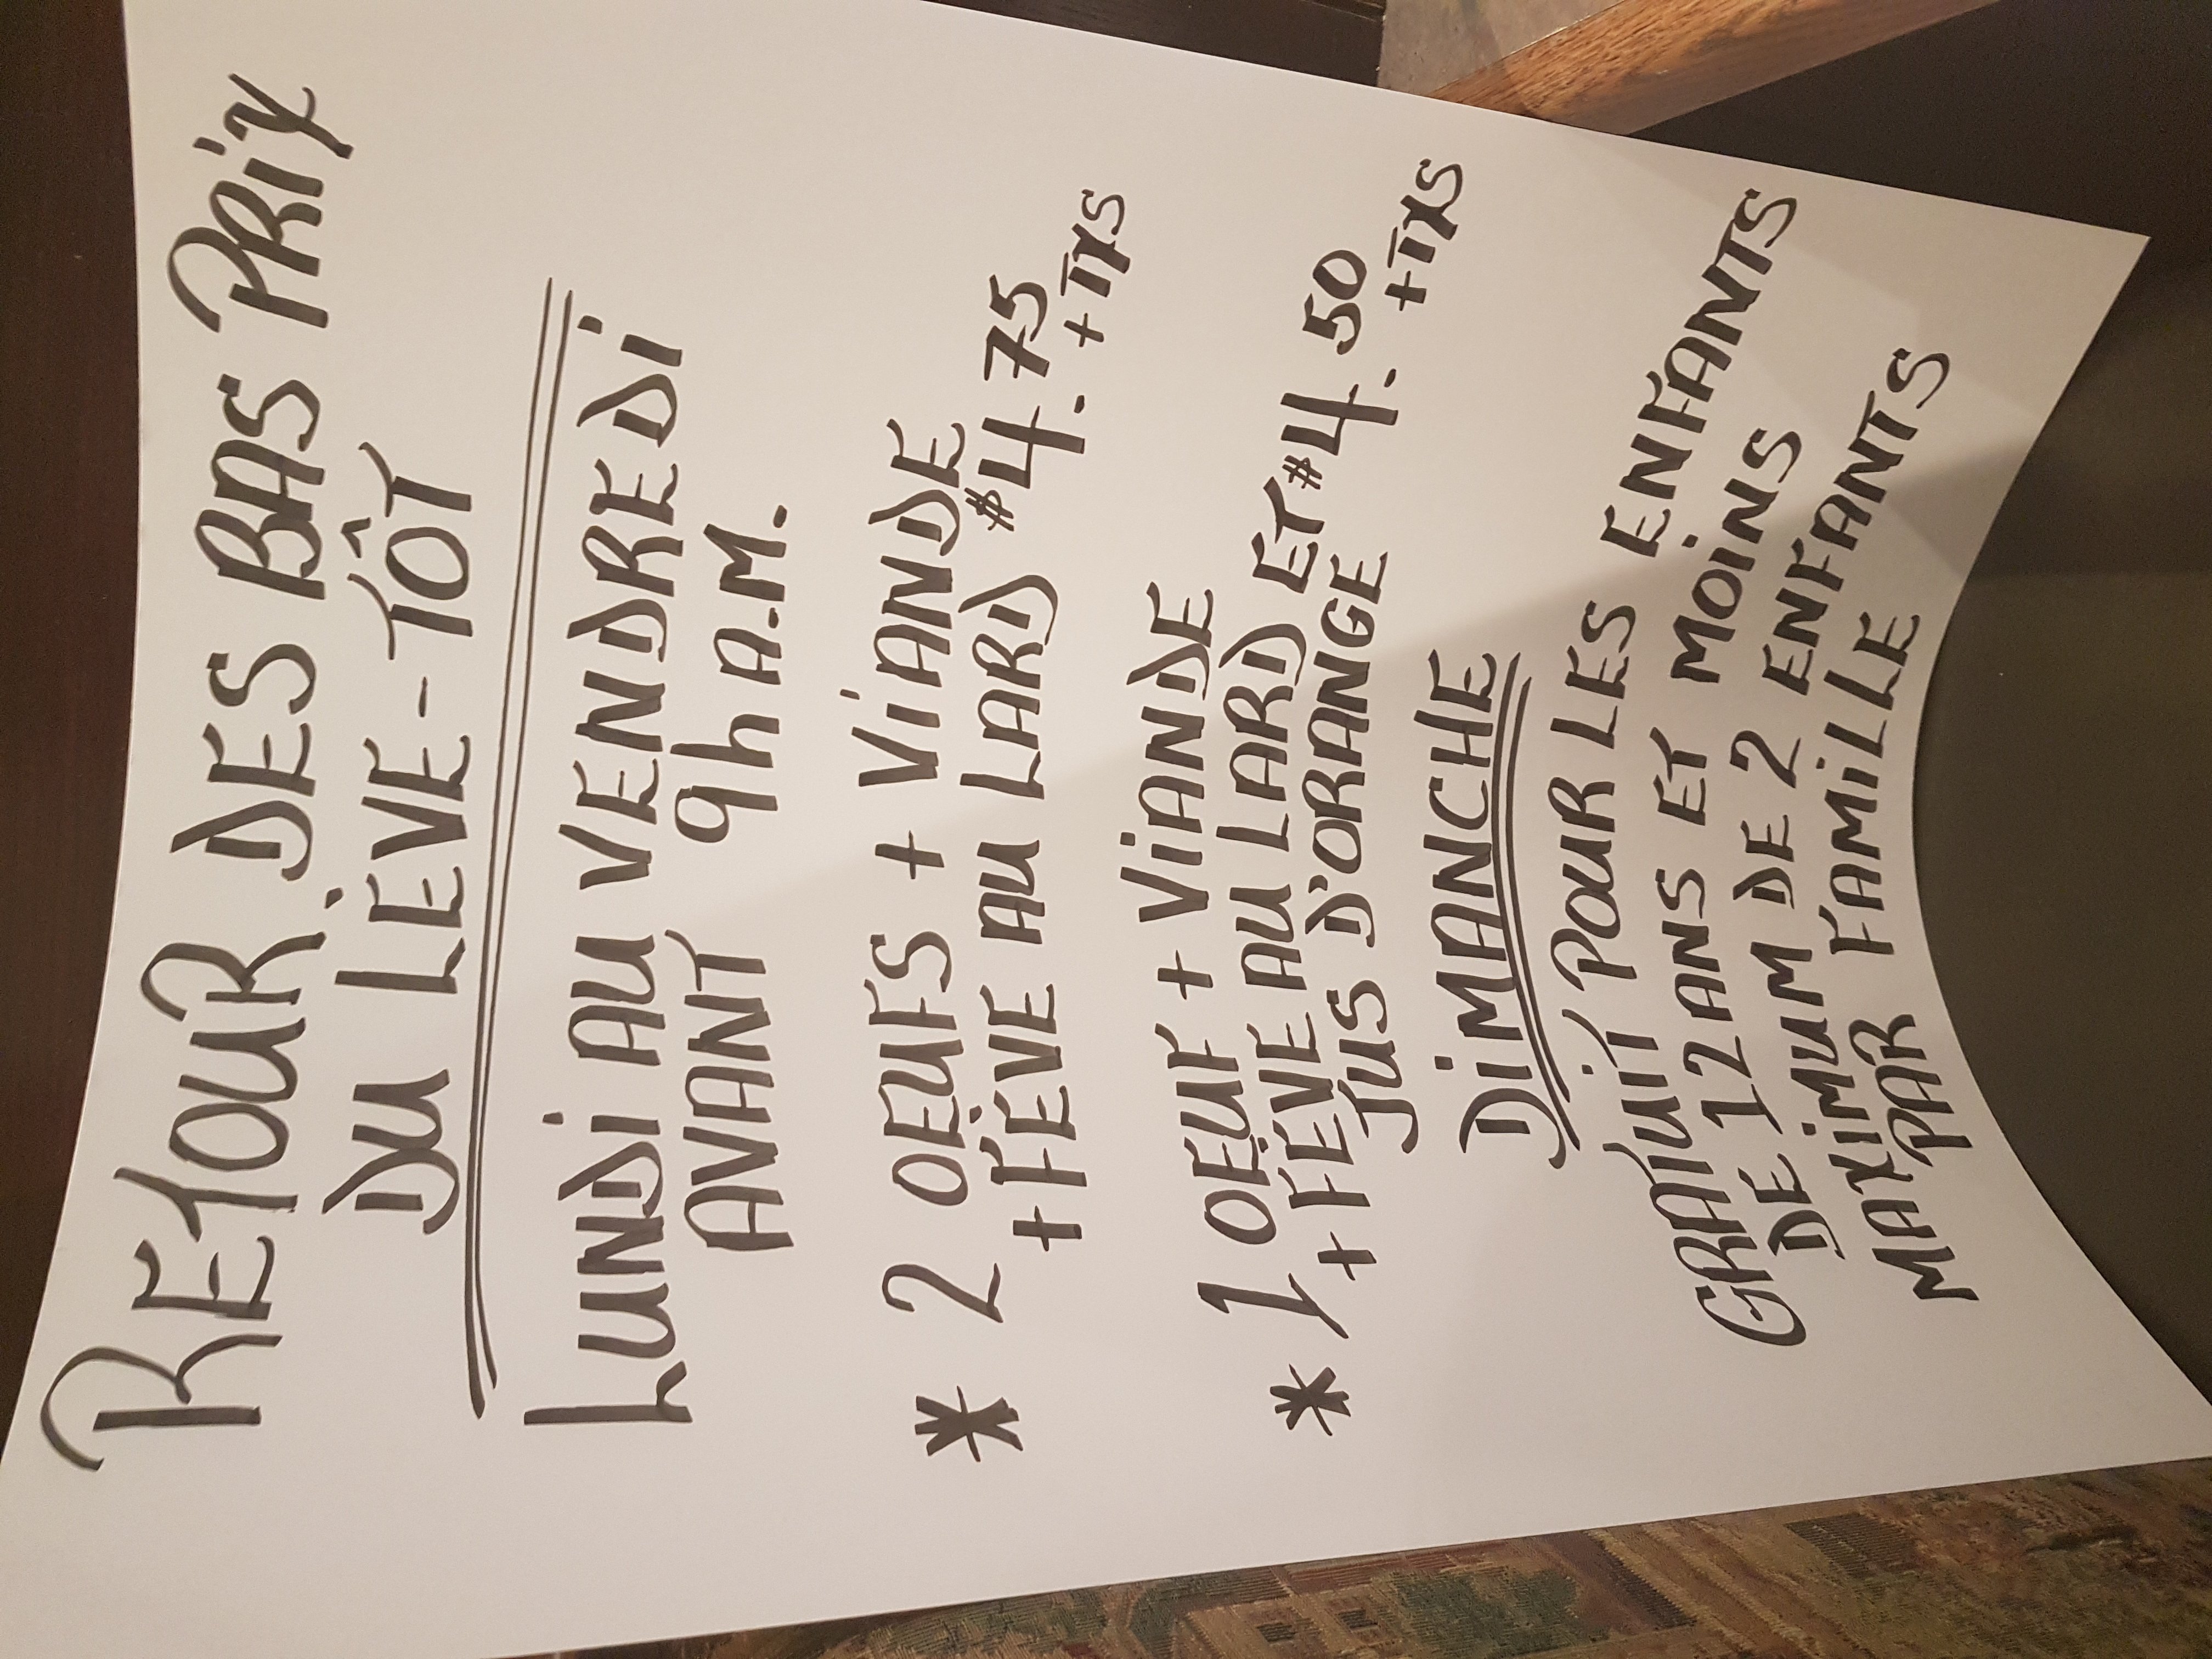 RETOUR DES BAS PRiX
DU LÈVE-TÔT
LUNDi AU VENDREDi
AVANT 9h A.M.
* 2 OEUFS + ViANDE
+ FÈVE AU LARD $4.75
+TXS
* 1 OEUF + ViANDE
+ FÈVE AU LARD ET $4.50
JUS D'ORANGE +TXS
DiMANCHE
GRATUiT POUR LES ENFANTS
DE 12 ANS ET MOiNS
DE MAXiMUM DE 2 ENFANTS
PAR FAMiLLE